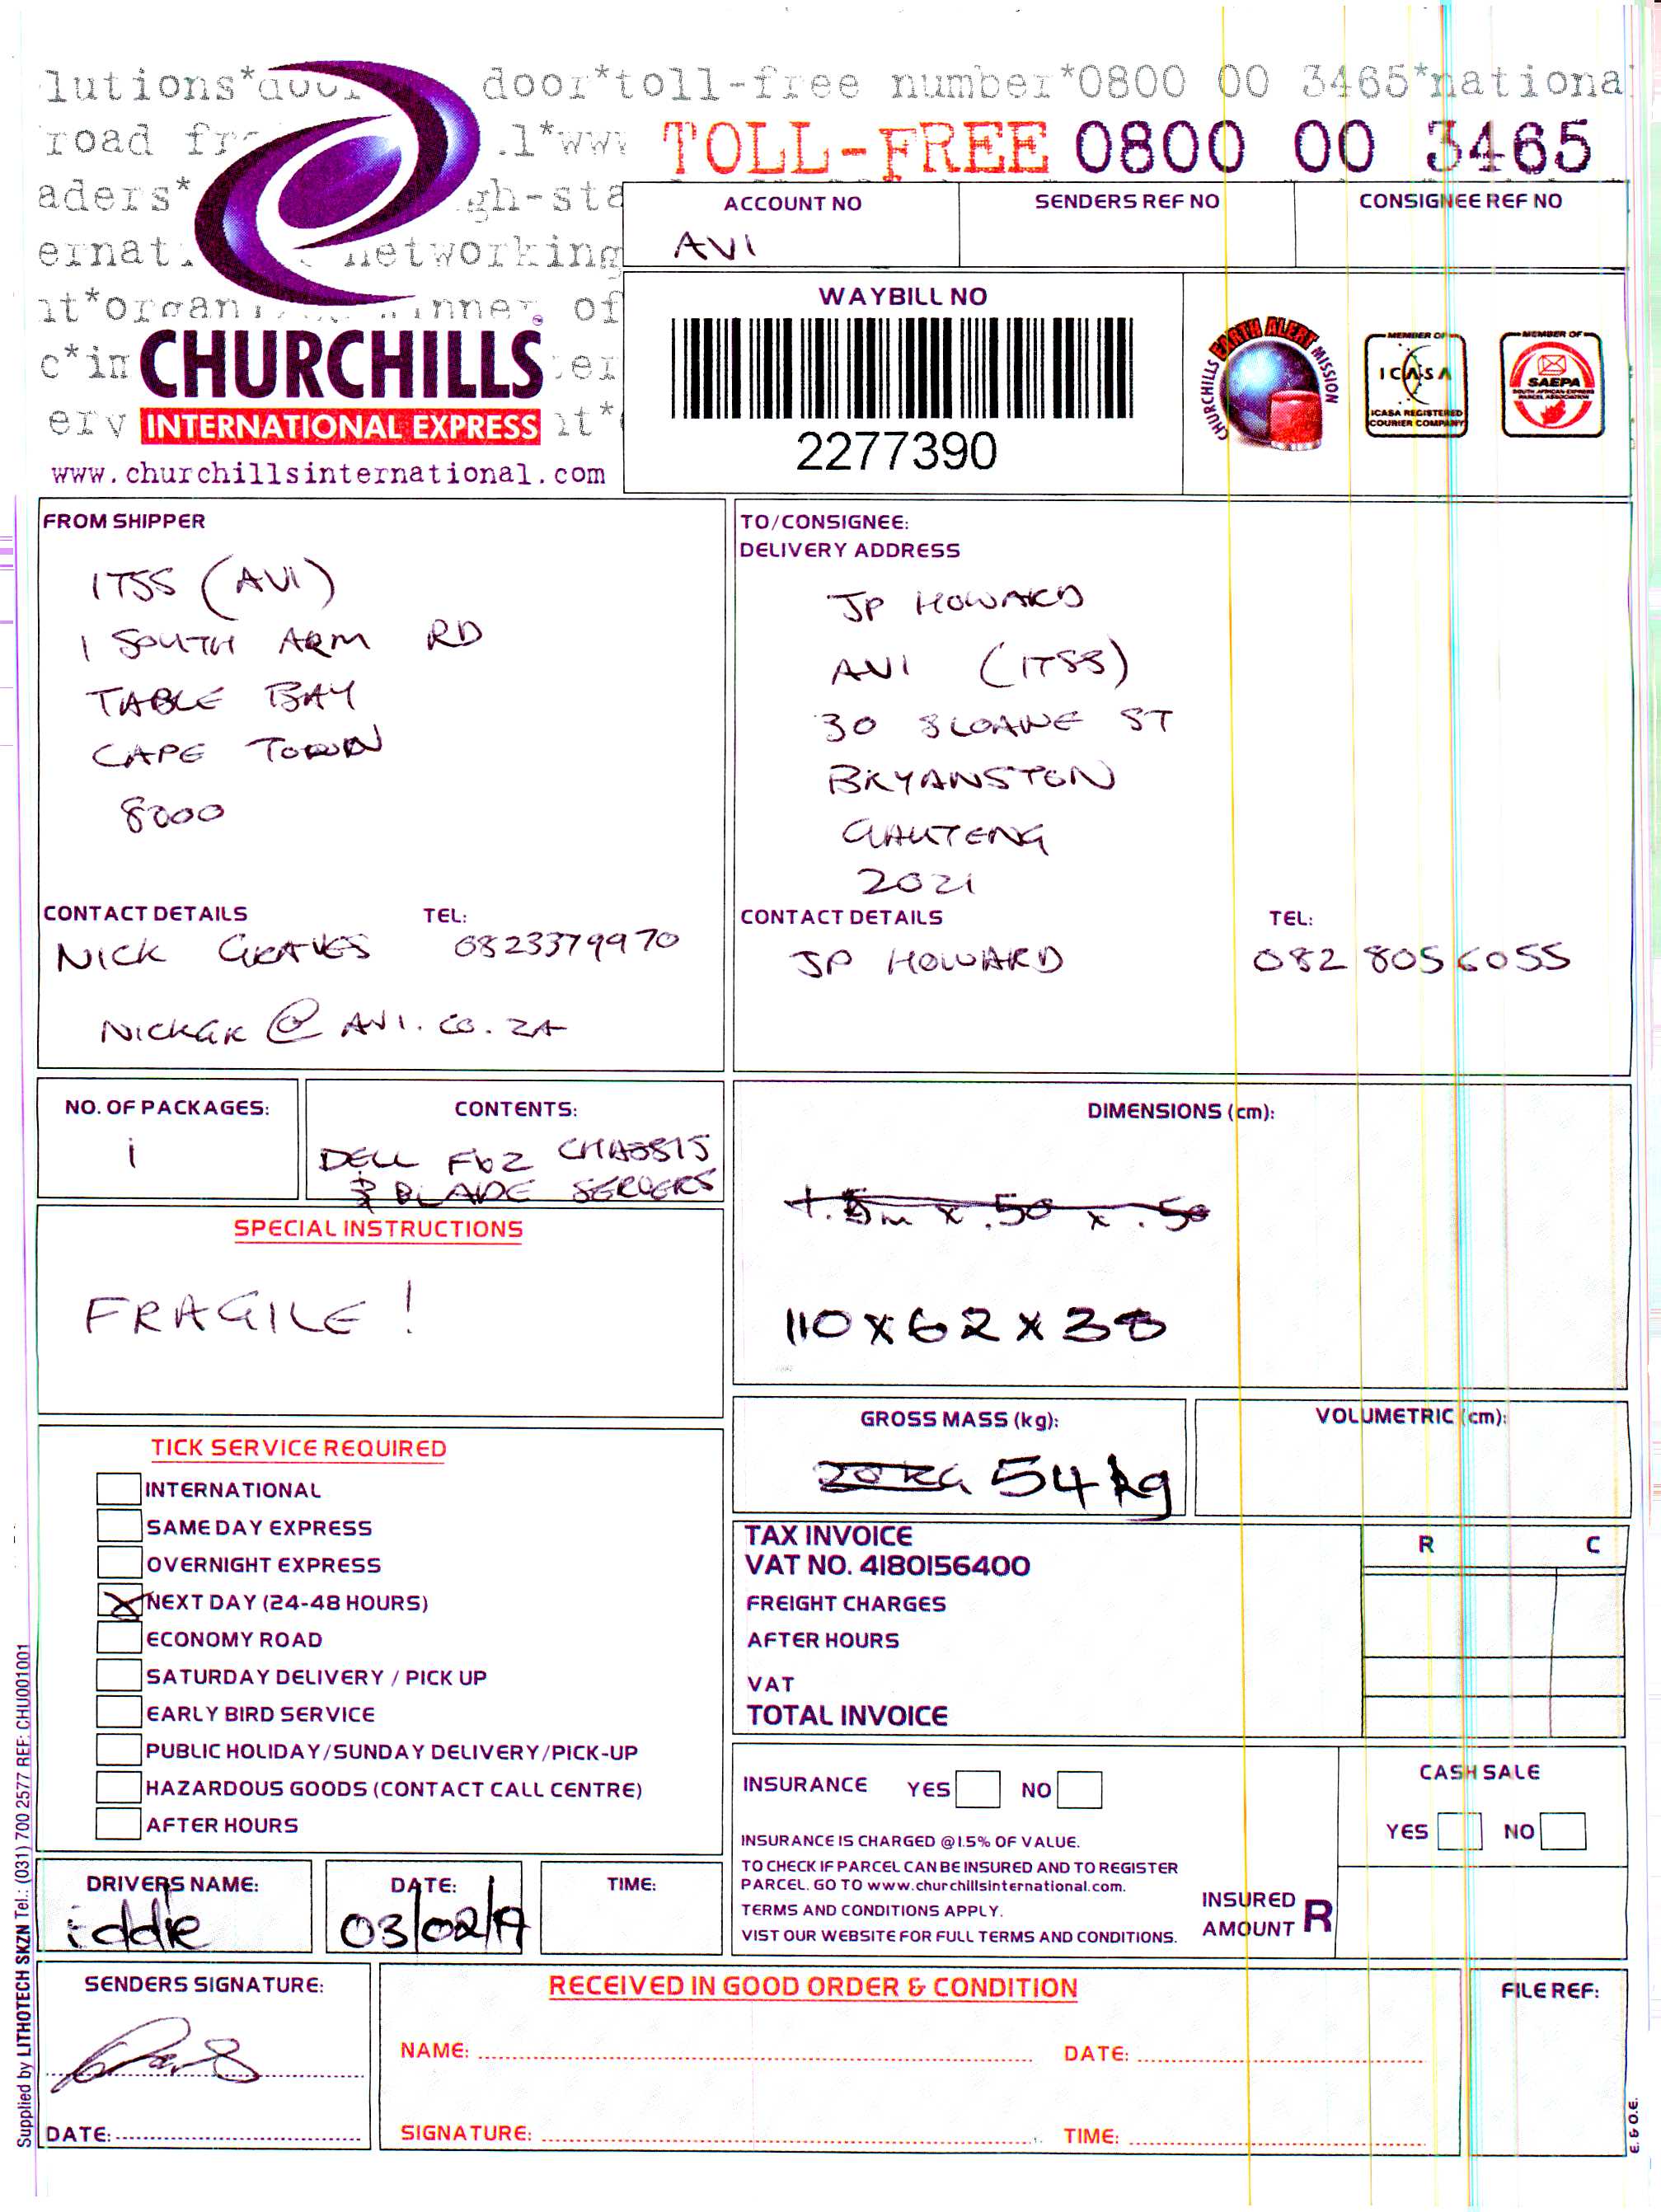 lutions*door door*toll-free number*0800 00 3465*national
road fr .1*www TOLL-FREE 0800 00 3465
aders* gh-sta
ernat networking
nt*organ nner of
c*in er
erv nt*
CHURCHILLS
INTERNATIONAL EXPRESS
www.churchillsinternational.com
ACCOUNT NO
AVI
SENDERS REF NO
CONSIGNEE REF NO
WAYBILL NO
2277390
CHURCHILLS EARTH ALERT MISSION
MEMBER OF
ICASA
ICASA REGISTERED
COURIER COMPANY
MEMBER OF
SAEPA
SOUTH AFRICAN EXPRESS
PARCEL ASSOCIATION
FROM SHIPPER
ITSS (AVI)
1 SOUTH ARM RD
TABLE BAY
CAPE TOWN
8000
CONTACT DETAILS TEL:
NICK GRAVES 0823379970
NICKGR @ AVI.CO.ZA
TO/CONSIGNEE:
DELIVERY ADDRESS
JP HOWARD
AVI (ITSS)
30 SLOANE ST
BRYANSTON
GAUTENG
2021
CONTACT DETAILS TEL:
JP HOWARD 082 805 6055
NO. OF PACKAGES:
1
CONTENTS:
DELL CHASSIS
& BLADE SERVERS
DIMENSIONS (cm):
x .50 x .50
110 x 62 x 38
SPECIAL INSTRUCTIONS
FRAGILE!
GROSS MASS (kg):
20 KG 54 kg
VOLUMETRIC (cm):
TICK SERVICE REQUIRED
INTERNATIONAL
SAME DAY EXPRESS
OVERNIGHT EXPRESS
X NEXT DAY (24-48 HOURS)
ECONOMY ROAD
SATURDAY DELIVERY / PICK UP
EARLY BIRD SERVICE
PUBLIC HOLIDAY/SUNDAY DELIVERY/PICK-UP
HAZARDOUS GOODS (CONTACT CALL CENTRE)
AFTER HOURS
TAX INVOICE R C
VAT NO. 4180156400
FREIGHT CHARGES
AFTER HOURS
VAT
TOTAL INVOICE
INSURANCE YES NO
INSURANCE IS CHARGED @ 1.5% OF VALUE.
TO CHECK IF PARCEL CAN BE INSURED AND TO REGISTER
PARCEL. GO TO www.churchillsinternational.com.
TERMS AND CONDITIONS APPLY.
VIST OUR WEBSITE FOR FULL TERMS AND CONDITIONS.
INSURED
AMOUNT R
CASH SALE
YES NO
DRIVERS NAME:
iddie
DATE:
03/02/17
TIME:
SENDERS SIGNATURE:
DATE:
RECEIVED IN GOOD ORDER & CONDITION
NAME: DATE:
SIGNATURE: TIME:
FILE REF:
E. & O.E.
Supplied by LITHOTECH SKZN Tel.: (031) 700 2577 REF: CHU001001